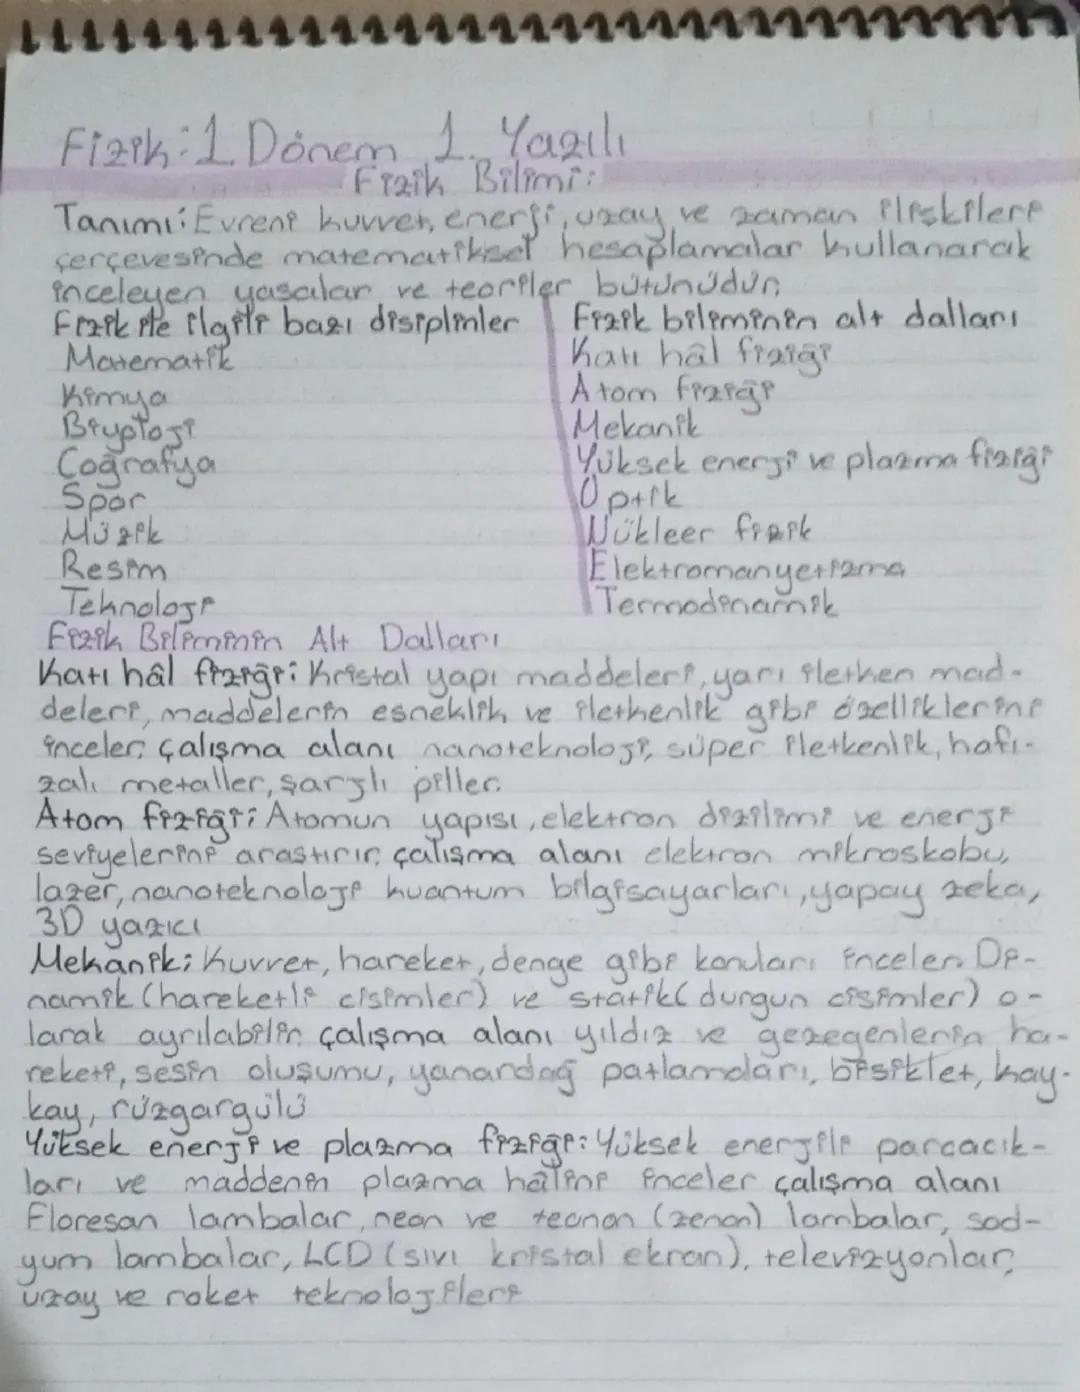 Fizik: 1. Dönem 1. Yazılı
Fizik Bilimi:
Tanımı: Evreni kuvvet, enerji, uzay ve zaman ilişkileri
çerçevesinde matematiksel hesaplamalar kullanarak
inceleyen yasalar ve teoriler bütünüdür.
Fizik ile ilgili bazı disiplinler
Matematik
Kimya
Biyoloji
Coğrafya
Spor
Müzik
Resim
Teknoloji
Fizik biliminin alt dalları
Katı hâl fiziği
Atom fiziği
Mekanik
Yüksek enerji ve plazma fiziği
Optik
Nükleer fizik
Elektromanyetizma
Termodinamik
Fizik Biliminin Alt Dalları
Katı hâl fiziği: Kristal yapı maddeleri, yarı iletken mad-
deleri, maddelerin esneklik ve iletkenlik gibi özelliklerini
inceler. çalışma alanı nanoteknoloji, süper iletkenlik, hafı-
zalı metaller, şarjlı piller.
Atom fiziği: Atomun yapısı, elektron dizilimi ve enerji
seviyelerini arastırır. çalışma alanı elektron mikroskobu,
lazer, nanoteknoloji kuantum bilgisayarları, yapay zeka,
3D yazıcı
Mekanik: Kuvvet, hareket, denge gibi konuları inceler. Di-
namik (hareketli cisimler) ve statik (durgun cisimler) o-
larak ayrılabilir. çalışma alanı yıldız ve gezegenlerin ha-
reketi, sesin oluşumu, yanardağ patlamaları, bisiklet, kay-
kay, rüzgargülü
Yüksek enerji ve plazma fiziği: Yüksek enerjili parcacık-
ları ve maddenin plazma hâlini inceler çalışma alanı
Floresan lambalar, neon ve tecnon (zenon) lambalar, sod-
yum lambalar, LCD (sıvı kristal ekran), televizyonlar,
uzay ve roket teknolojileri